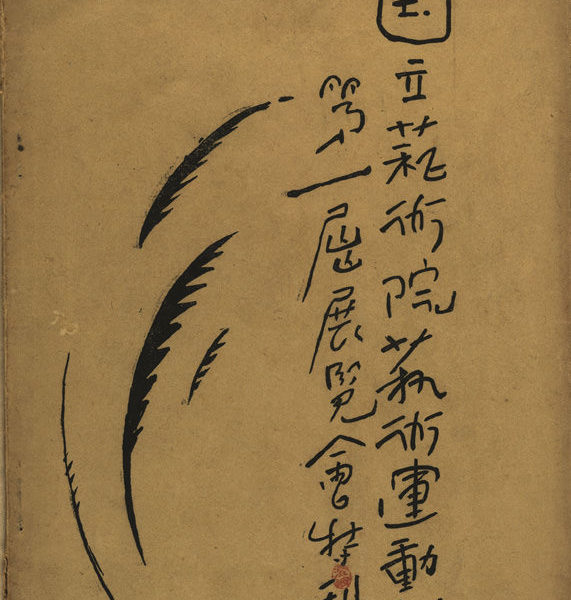 国立藝術院藝術運動
第一屆展覽會特刊